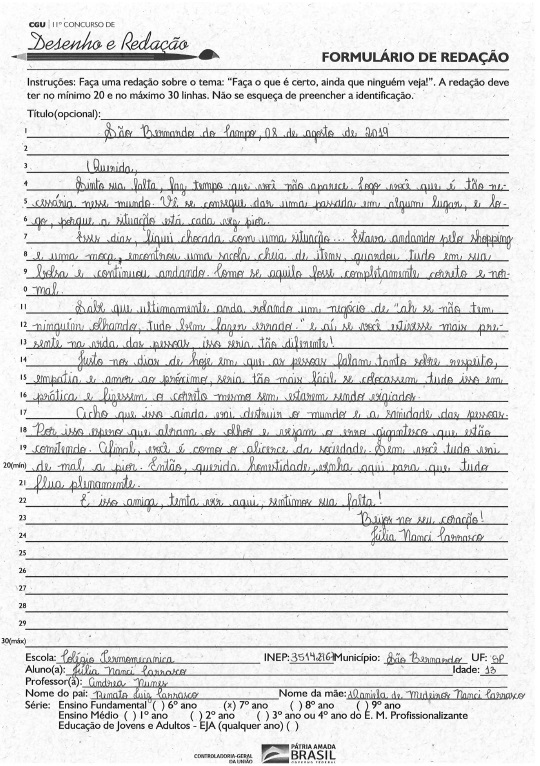 CGU | 11º CONCURSO DE
Desenho e Redação
FORMULÁRIO DE REDAÇÃO
Instruções: Faça uma redação sobre o tema: "Faça o que é certo, ainda que ninguém veja!". A redação deve
ter no mínimo 20 e no máximo 30 linhas. Não se esqueça de preencher a identificação.
Título(opcional):
1 São Bernardo do Campo, 08 de agosto de 2019
2
3 Querida,
4 Sinto sua falta, faz tempo que você não aparece. Logo você que é tão ne-
5 cessária nesse mundo. Vê se consegue dar uma passada em algum lugar, e lo-
6 go, porque a situação está cada vez pior.
7 Esses dias, fiquei chocada com uma situação... Estava andando pelo shopping
8 e uma moça, encontrou uma sacola cheia de itens, guardou tudo em sua
9 bolsa e continuou andando. Como se aquilo fosse completamente correto e nor-
0 mal.
11 Sabe que ultimamente anda rolando um negócio de "ah se não tem
12 ninguém olhando, tudo bem fazer errado" e aí, se você estivesse mais pre-
13 sente na vida das pessoas, isso seria tão diferente!
14 Justo nos dias de hoje em que as pessoas falam tanto sobre respeito,
15 empatia e amor ao próximo, seria tão mais fácil se colocassem tudo isso em
16 prática e fizessem o correto mesmo sem estarem sendo vigiados.
17 Acho que isso ainda vai destruir o mundo e a sanidade das pessoas.
18 Por isso espero que abram os olhos e vejam o erro gigantesco que estão
19 cometendo. Afinal, você é como o alicerce da sociedade. Sem você tudo vai
20(mín) de mal a pior. Então, querida honestidade, venha aqui para que tudo
21 flua plenamente.
22 É isso amiga, tenta vir aqui, sentimos sua falta!
23 Beijos no seu coração!
24 Júlia Nanci Carrasco
25
26
27
28
29
30(máx)
Escola: Colégio Termomecanica INEP: Município: São Bernardo UF: SP
Aluno(a): Júlia Nanci Carrasco Idade: 13
Professor(a): Andrea Nunes
Nome do pai: Renato Luiz Carrasco Nome da mãe: Daniela de Medeiros Nanci Carrasco
Série: Ensino Fundamental ( ) 6º ano (x) 7º ano ( ) 8º ano ( ) 9º ano
Ensino Médio ( ) 1º ano ( ) 2º ano ( ) 3º ano ou 4º ano do E. M. Profissionalizante
Educação de Jovens e Adultos - EJA (qualquer ano) ( )
CONTROLADORIA-GERAL
DA UNIÃO
PÁTRIA AMADA
BRASIL
GOVERNO FEDERAL